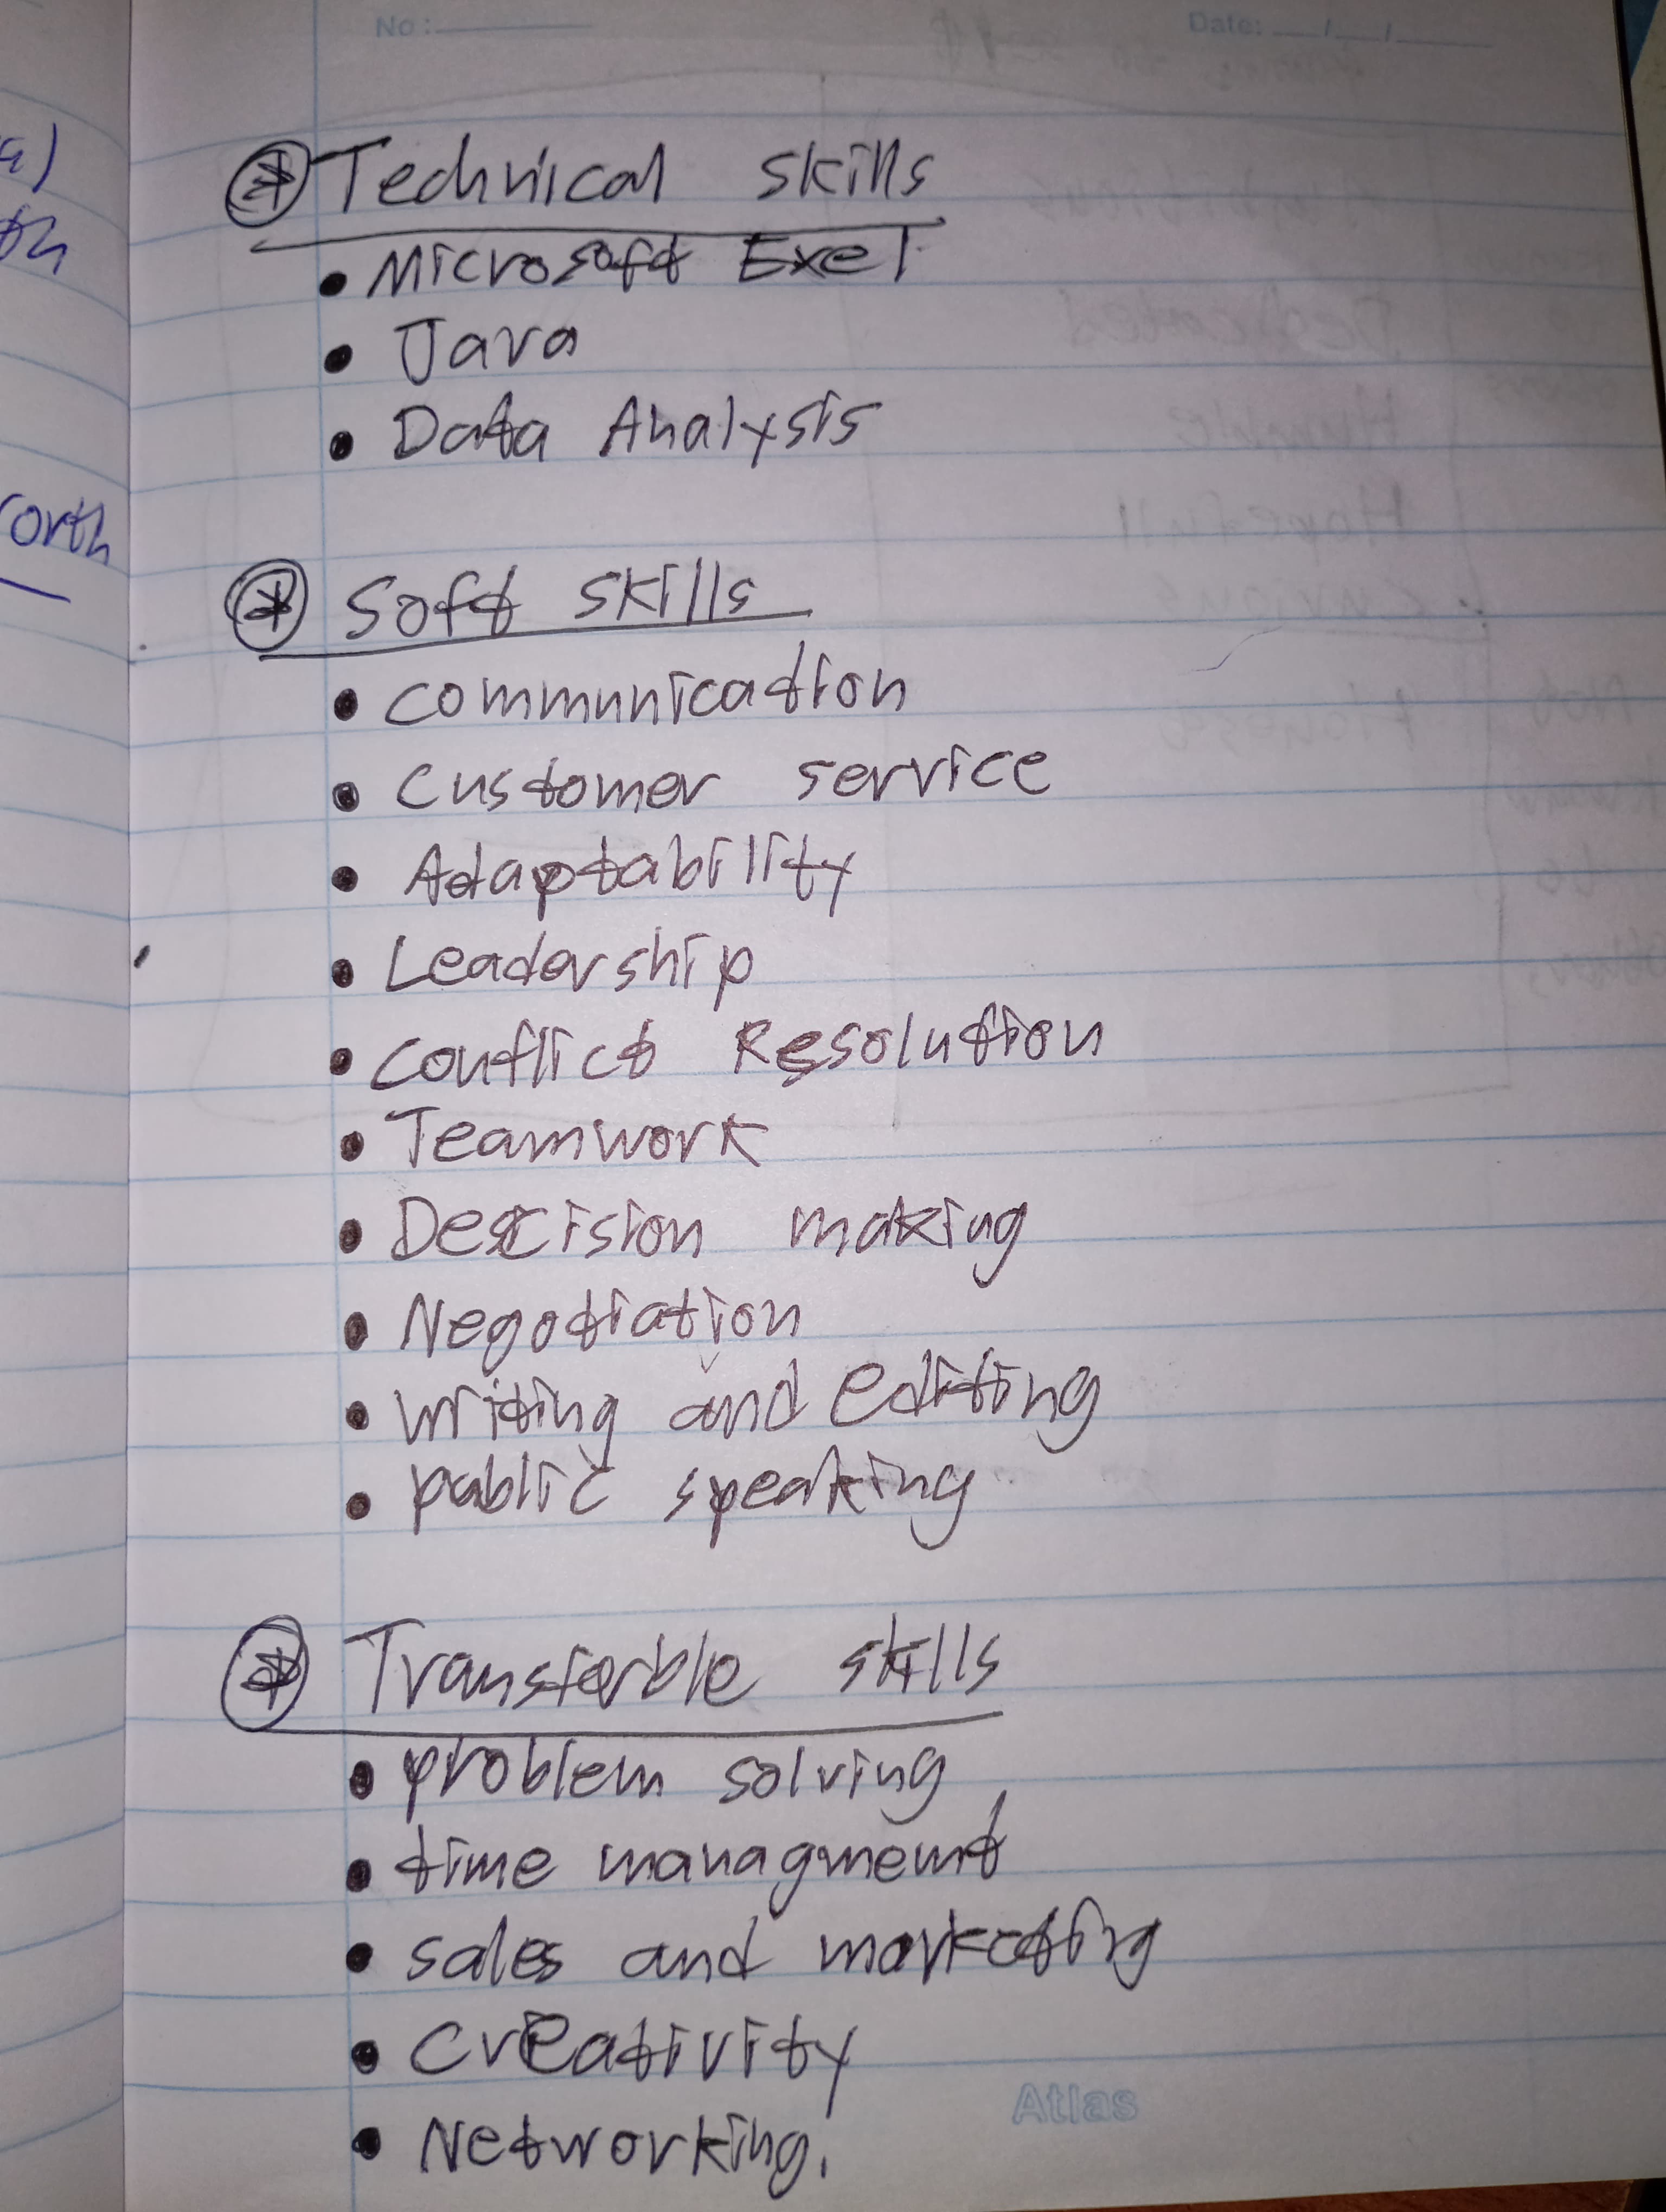 No: Date: / /
Technical skills
• Microsoft Exel
• Java
• Data Analysis
orth
Soft skills
• communication
• customer service
• Adaptability
• Leadership
• conflict Resolution
• Teamwork
• Descision making
• Negotiation
• writing and editing
• public speaking
Transferble skills
• problem solving
• time managment
• sales and marketing
• Creativity
Atlas
• Networking.